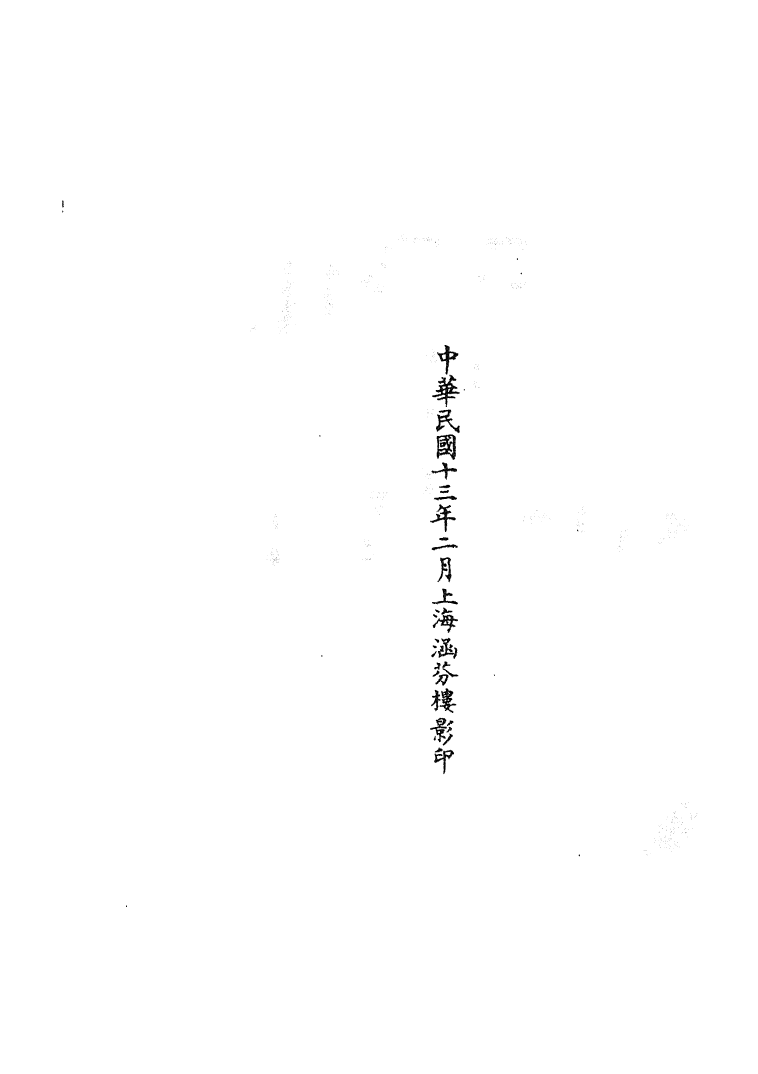 中華民國十三年二月上海涵芬樓影印